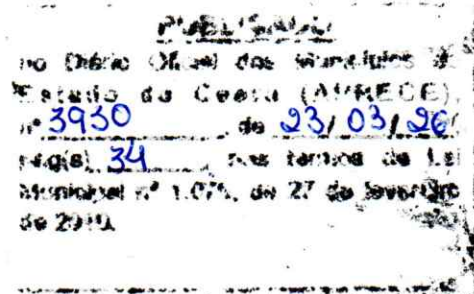 PUBLICADO
no Diário Oficial dos Municípios do
Estado do Ceará (APRECE),
nº 3930 de 23/03/26
pág(s) 34 nos termos da Lei
Municipal nº de 27 de fevereiro
de